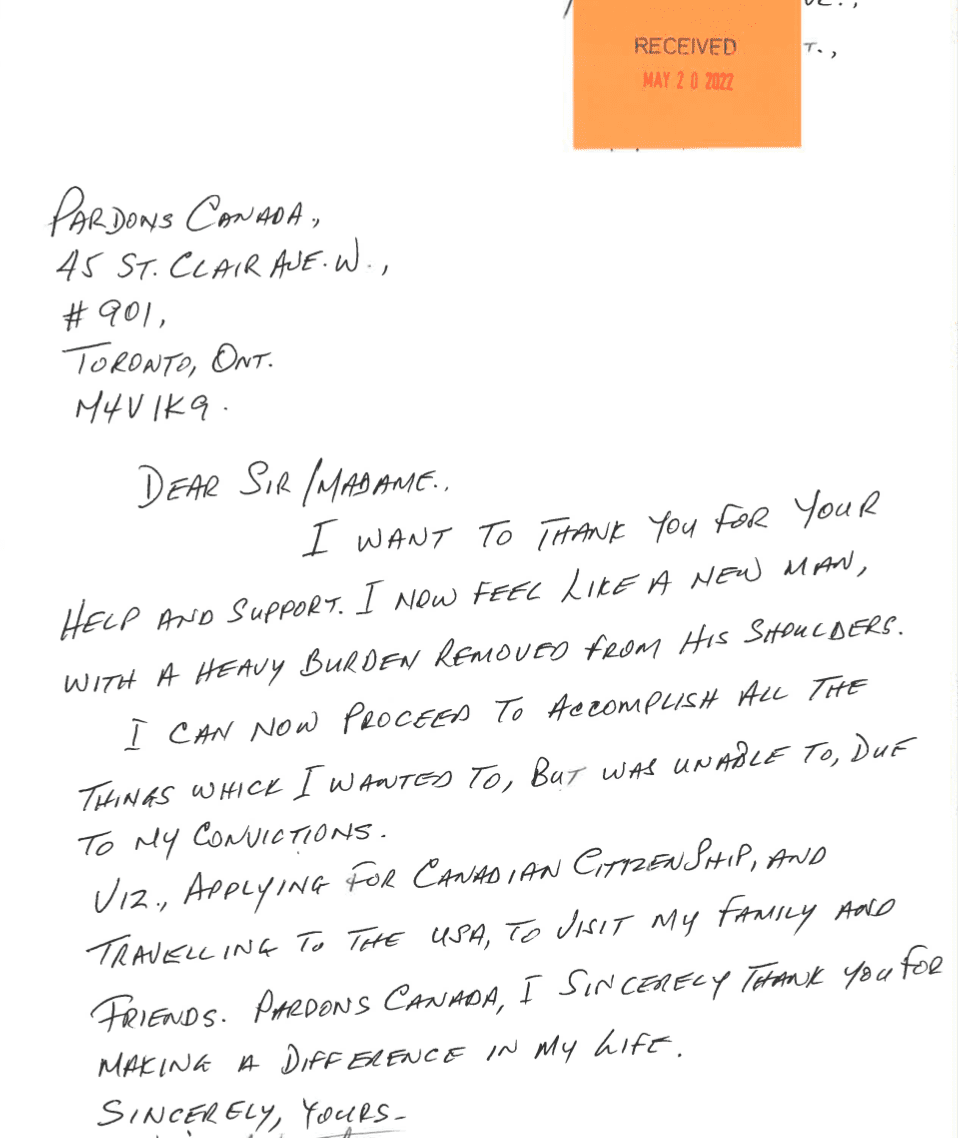 RECEIVED
T.,
MAY 20 2022
PARDONS CANADA,
45 ST. CLAIR AVE. W.,
# 901,
TORONTO, ONT.
M4V 1K9.
DEAR SIR/MADAME.,
I WANT TO THANK YOU FOR YOUR
HELP AND SUPPORT. I NOW FEEL LIKE A NEW MAN,
WITH A HEAVY BURDEN REMOVED FROM HIS SHOULDERS.
I CAN NOW PROCEED TO ACCOMPLISH ALL THE
THINGS WHICH I WANTED TO, BUT WAS UNABLE TO, DUE
TO MY CONVICTIONS.
VIZ., APPLYING FOR CANADIAN CITIZENSHIP, AND
TRAVELLING TO THE USA, TO VISIT MY FAMILY AND
FRIENDS. PARDONS CANADA, I SINCERELY THANK YOU FOR
MAKING A DIFFERENCE IN MY LIFE.
SINCERELY, YOURS-